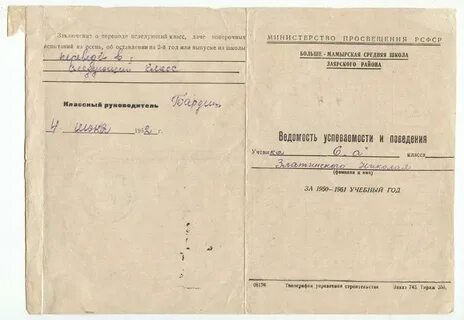 Заключение о переводе в следующий класс, даче поверочных
испытаний на осень, об оставлении на 2-й год или выпуске из школы
переведён в
следующий класс
Классный руководитель
4 июня 196 г.
МИНИСТЕРСТВО ПРОСВЕЩЕНИЯ РСФСР
БОЛЬШЕ-МАМЫРСКАЯ СРЕДНЯЯ ШКОЛА
ЗАЯРСКОГО РАЙОНА
Ведомость успеваемости и поведения
Ученика 6 "а" класса
Златинского Николая
(фамилия и имя)
ЗА 1960—1961 УЧЕБНЫЙ ГОД
Типография управления строительства Заказ 745 Тираж